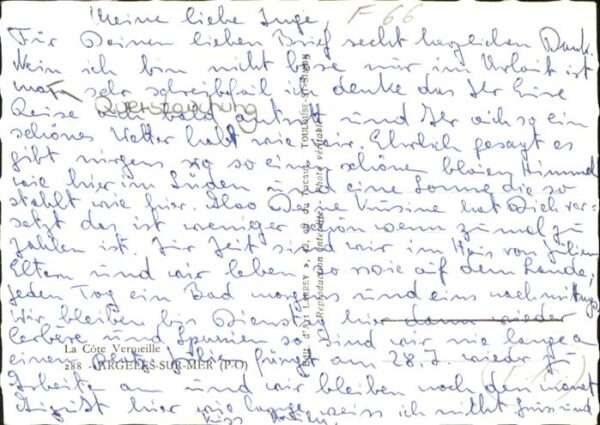 Meine liebe Inge,
F 66
Für Deinen lieben Brief recht herzlichen Dank.
Nein ich bin nicht böse nur im Urlaub ist
man sehr schreibfaul ich denke das Ihr Eure
Querzeichnung
Reise auch bald antritt und Ihr auch so ein
schönes Wetter habt wie wir. Ehrlich gesagt es
gibt nirgens so einen schönen blauen Himmel
wie hier im Süden und eine Sonne die so
strahlt wie hier. Also Deine Cusine hat Dich ver-
setzt das ist weniger schön wenn zumal zu
zahlen ist. Zur Zeit sind wir im Haus von
Eltern und wir leben so wie auf dem Lande,
jeden Tag ein Bad morgens und eins nachmittags
Wir bleiben bis Dienstag hier dann wieder
Cerbère und Spanien so sind wir nie lange an
einem Ort fängt am 28.7. wieder zu
Arbeiten an und wir bleiben noch den Monat
August hier wie lange weiss ich nicht
La Côte Vermeille
288 - ARGELÈS-SUR-MER (P.-O.)
Reproduction interdite - Photo véritable